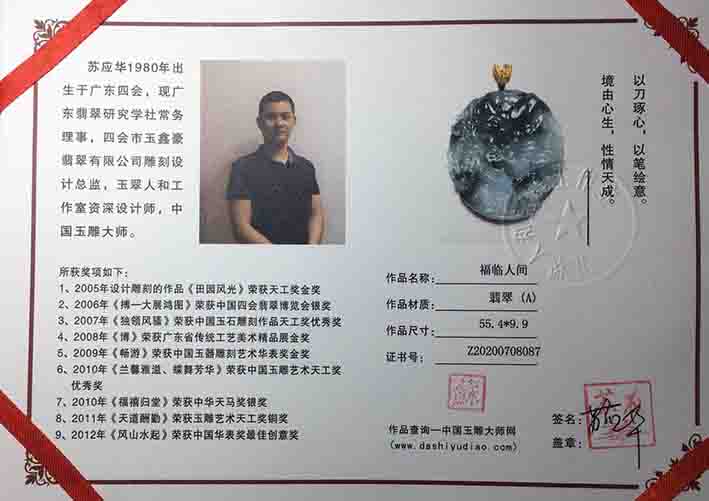 苏应华1980年出
生于广东四会，现广
东翡翠研究学社常务
理事，四会市玉鑫豪
翡翠有限公司雕刻设
计总监，玉翠人和工
作室资深设计师，中
国玉雕大师。
以刀琢心，以笔绘意。
境由心生，性情天成。
所获奖项如下：
1、2005年设计雕刻的作品《田园风光》荣获天工奖金奖
2、2006年《搏一大展鸿图》荣获中国四会翡翠博览会银奖
3、2007年《独领风骚》荣获中国玉石雕刻作品天工奖优秀奖
4、2008年《博》荣获广东省传统工艺美术精品展金奖
5、2009年《畅游》荣获中国玉器雕刻艺术华表奖金奖
6、2010年《兰馨雅道、蝶舞芳华》荣获中国玉雕艺术天工奖
优秀奖
7、2010年《福禧归堂》荣获中华天马奖银奖
8、2011年《天道酬勤》荣获玉雕艺术天工奖铜奖
9、2012年《风山水起》荣获中国华表奖最佳创意奖
作品名称： 福临人间
作品材质： 翡翠（A）
作品尺寸： 55.4*9.9
证书号： Z20200708087
作品查询—中国玉雕大师网
(www.dashiyudiao.com)
签名： 苏应华
盖章：